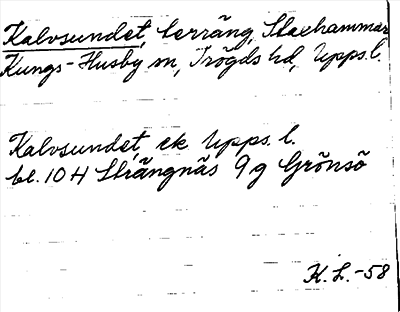 Kalvsundet, terräng, Slaehammar
Kungs-Husby sn, Trögds hd, Upps. l.
Kalvsundet, ek Upps. l.
bl. 10 H Strängnäs 9 g Grönsö
K. L. -58